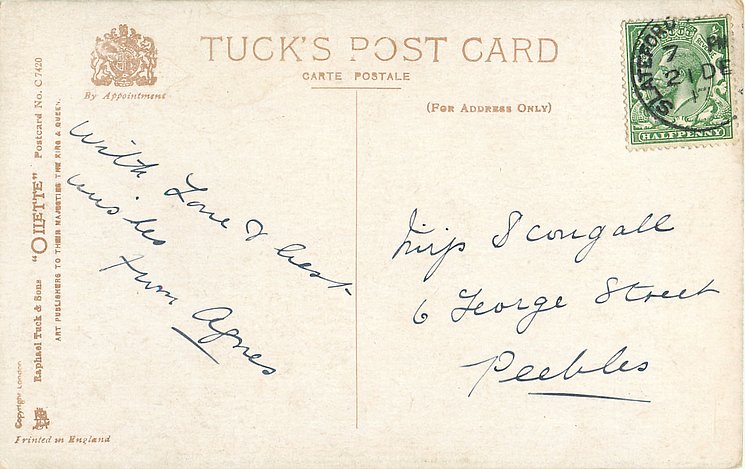 TUCK'S POST CARD
CARTE POSTALE
By Appointment
(FOR ADDRESS ONLY)
Raphael Tuck & Sons "OILETTE" Postcard No. C 7420
ART PUBLISHERS TO THEIR MAJESTIES THE KING & QUEEN.
Copyright London
Printed in England
With Love & best
wishes
from Agnes
Miss Scougall
6 George Street
Peebles
SLATEFORD
7 PM
21 DE
17
HALFPENNY